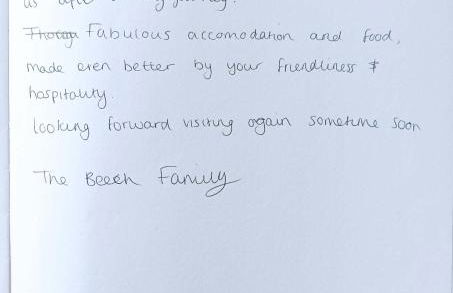 us
Fabulous accomodation and food,
made even better by your friendliness &
hospitality.
looking forward visiting again sometime soon
The Beech Family